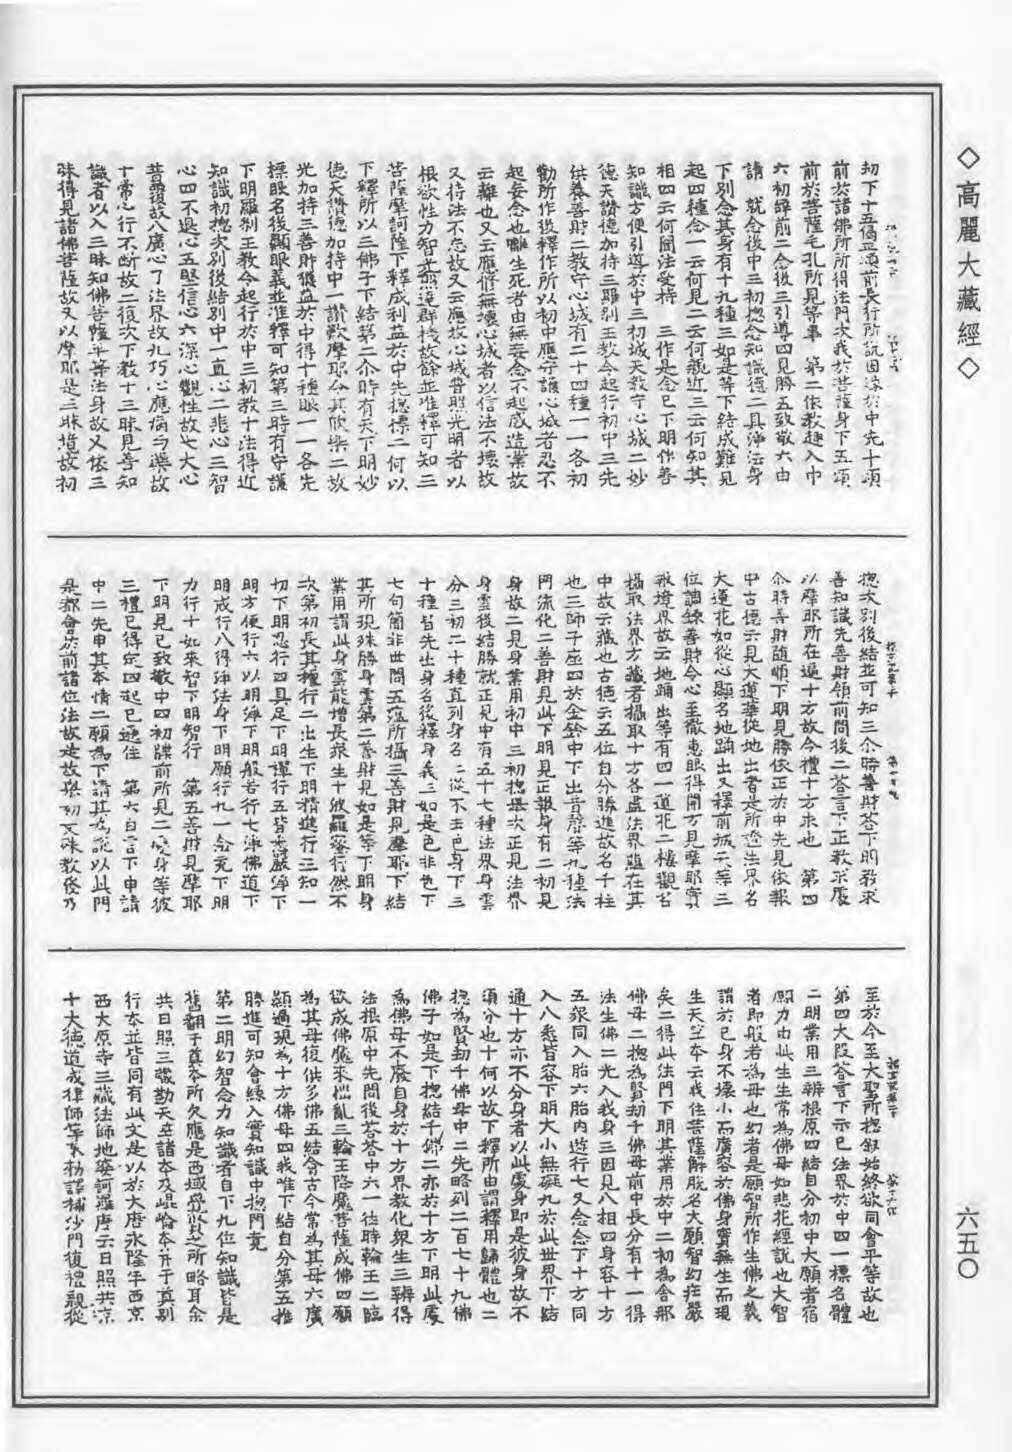 ◇高麗大藏經◇
六五〇
初下十五偈正頌前長行所說因緣於中先十頌
前於諸佛所所得法門次我於菩薩身下五頌
前於菩薩毛孔所見等事　第二依教趣入中
六初辭前二念後三引導四見勝五致敬六由
請　就念後中三初揔念知識徑二具淨法身
下別念其身有十九種三如是等下結成難見
起四種念一云何見二云何親近三云何知其
相四云何聞法受持　三作是念已下明作善
知識方便引導於中三初城天教守心城二妙
德天讚德加持三羅刹王教令起行初中三先
供養善財二教守心城有二十四種一一各初
勸所作後釋作所以初中應守護心城者忍不
起妄念也離生死者由無妄念不起惑造業故
云離也又云應修無壞心城者以信法不壞故
又持法不忘故又云應故心城普照光明者以
根欲性力智光照達群機故餘並准釋可知三
菩薩摩訶薩下釋成利益於中先揔摽二何以
下釋所以三佛子下結第二介時有天下明妙
德天讚德加持中一讚歎摩耶令其欣樂二放
光加持三善財獲益於中得十種眼一一各先
摽眼名後顯眼義並准釋可知第三時有守護
下明羅刹王教令起行於中三初教十法得近
知識初揔次別後結別中一直心二悲心三智
心四不退心五堅信心六深心觀性故七大心
普覆故八廣心了法界故九巧心應病与藥故
十常心行不斷故二復次下教十三昧見善知
識者以入三昧知佛菩薩平等法身故又依三
昧得見諸佛菩薩故又以摩耶是三昧境故初
揔次別後結並可知三介時善財荅下明教求
善知識先善財領前問後二荅言下正教求處
以摩耶所在遍十方故令禮十方求也　第四
介時善財隨順下明見勝依正於中先見依報
中古德云見大蓮華從地出者是所證法界名
大蓮花如從心顯名地踊出又釋前城天等三
位調鍊善財令心至徹惠眼得開方見摩耶實
報境界故云地踊出等有四一道花二樓觀含
攝取法界方藏者攝取十方各盡法界蘊在其
中故云藏也古德云五位自分勝進故名千柱
也三師子座四於金鈴中下出音聲等九種法
門流化二善財見此下明見正報身有二初見
身故二見身業用初中三初揔舉次正見法界
身雲後結勝就正見中有五十七種法界身雲
分三初二十種直列身名二從不去色身下三
十種皆先出身名後釋身義三如是色非色下
七句簡非世間五蘊所攝三善財見摩耶下結
其所現殊勝身雲第二善財見如是等下明身
業用謂此身雲能增長衆生十波羅蜜行然不
次第初長其檀行二出生下明精進行三知一
切下明忍行四具足下明禪行五皆悉嚴淨下
明方便行六以明淨下明般若行七淨佛道下
明戒行八得淨法身下明願行九一念充下明
力行十如來智下明智行　第五善財見摩耶
下明見已致敬中四初牒前所見二變身等彼
三禮已得定四起已遶住　第六白言下申請
中二先申其本情二願為下請其為說以此門
是都會於前諸位法故是故舉初文殊教發乃
至於今至大聖所揔敘始終欲同會平等故也
第四大段荅言下示己法界於中四一摽名體
二明業用三辨根原四結自分初中大願者宿
願力由此生生常為佛母如悲花經說也大智
者即般若為母也幻者是願智所作生佛之義
謂於己身不壞小而廣容於佛身實無生而現
生天竺本云我住菩薩解脫名大願智幻莊嚴
矣二得此法門下明其業用於中二初為舍那
佛母二揔為賢劫千佛母前中長分有十一得
法生佛二光入我身三因見八相四身容十方
五銀同入胎六胎內遊行七又念念下十方同
入八悉皆容下明大小無礙九於此世界下結
通十方亦不分身者以此處身即是彼身故不
須分也十何以故下釋所由謂釋用歸體也二
揔為賢劫千佛母中二先略列二百七十九佛
佛子如是下揔結千佛二亦於十方下明此處
為佛母不廢自身於十方界教化衆生三辨得
法根原中先問後荅荅中六一往時輪王二臨
欲成佛魔來惱亂三輪王降魔菩薩成佛四願
為其母復供多佛五結會古今常為其母六廣
顯過現為十方佛母四我唯下結自分第五推
勝進可知會緣入實知識中揔門竟
第二明幻智念力知識者自下九位知識皆是
舊翻于真本所欠應是西域覺賢之所略耳余
共日照三藏勘天竺諸本及崑崙本并于真別
行本並皆同有此文是以於大唐永隆年西京
西大原寺三藏法師地婆訶羅唐云日照共京
十大德道成律師等奉勑譯補沙門復禮親從